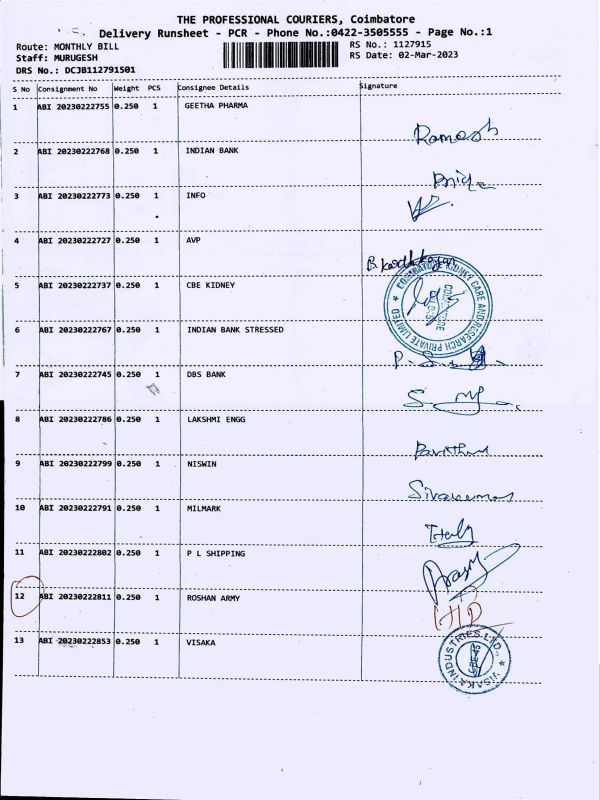 THE PROFESSIONAL COURIERS, Coimbatore
Delivery Runsheet - PCR - Phone No.:0422-3505555 - Page No.:1
Route: MONTHLY BILL
RS No.: 1127915
Staff: MURUGESH
RS Date: 02-Mar-2023
DRS No.: DCJB112791501
S No Consignment No Weight PCS Consignee Details Signature
1 ABI 20230222755 0.250 1 GEETHA PHARMA
Ramesh
2 ABI 20230222768 0.250 1 INDIAN BANK
3 ABI 20230222773 0.250 1 INFO
4 ABI 20230222727 0.250 1 AVP
B. Karthikeyan
5 ABI 20230222737 0.250 1 CBE KIDNEY
COIMBATORE KIDNEY CARE AND RESEARCH PRIVATE LIMITED
6 ABI 20230222767 0.250 1 INDIAN BANK STRESSED
7 ABI 20230222745 0.250 1 DBS BANK
8 ABI 20230222786 0.250 1 LAKSHMI ENGG
9 ABI 20230222799 0.250 1 NISWIN
10 ABI 20230222791 0.250 1 MILMARK
11 ABI 20230222802 0.250 1 P L SHIPPING
12 ABI 20230222811 0.250 1 ROSHAN ARMY
13 ABI 20230222853 0.250 1 VISAKA
VISAKA INDUSTRIES LTD.,